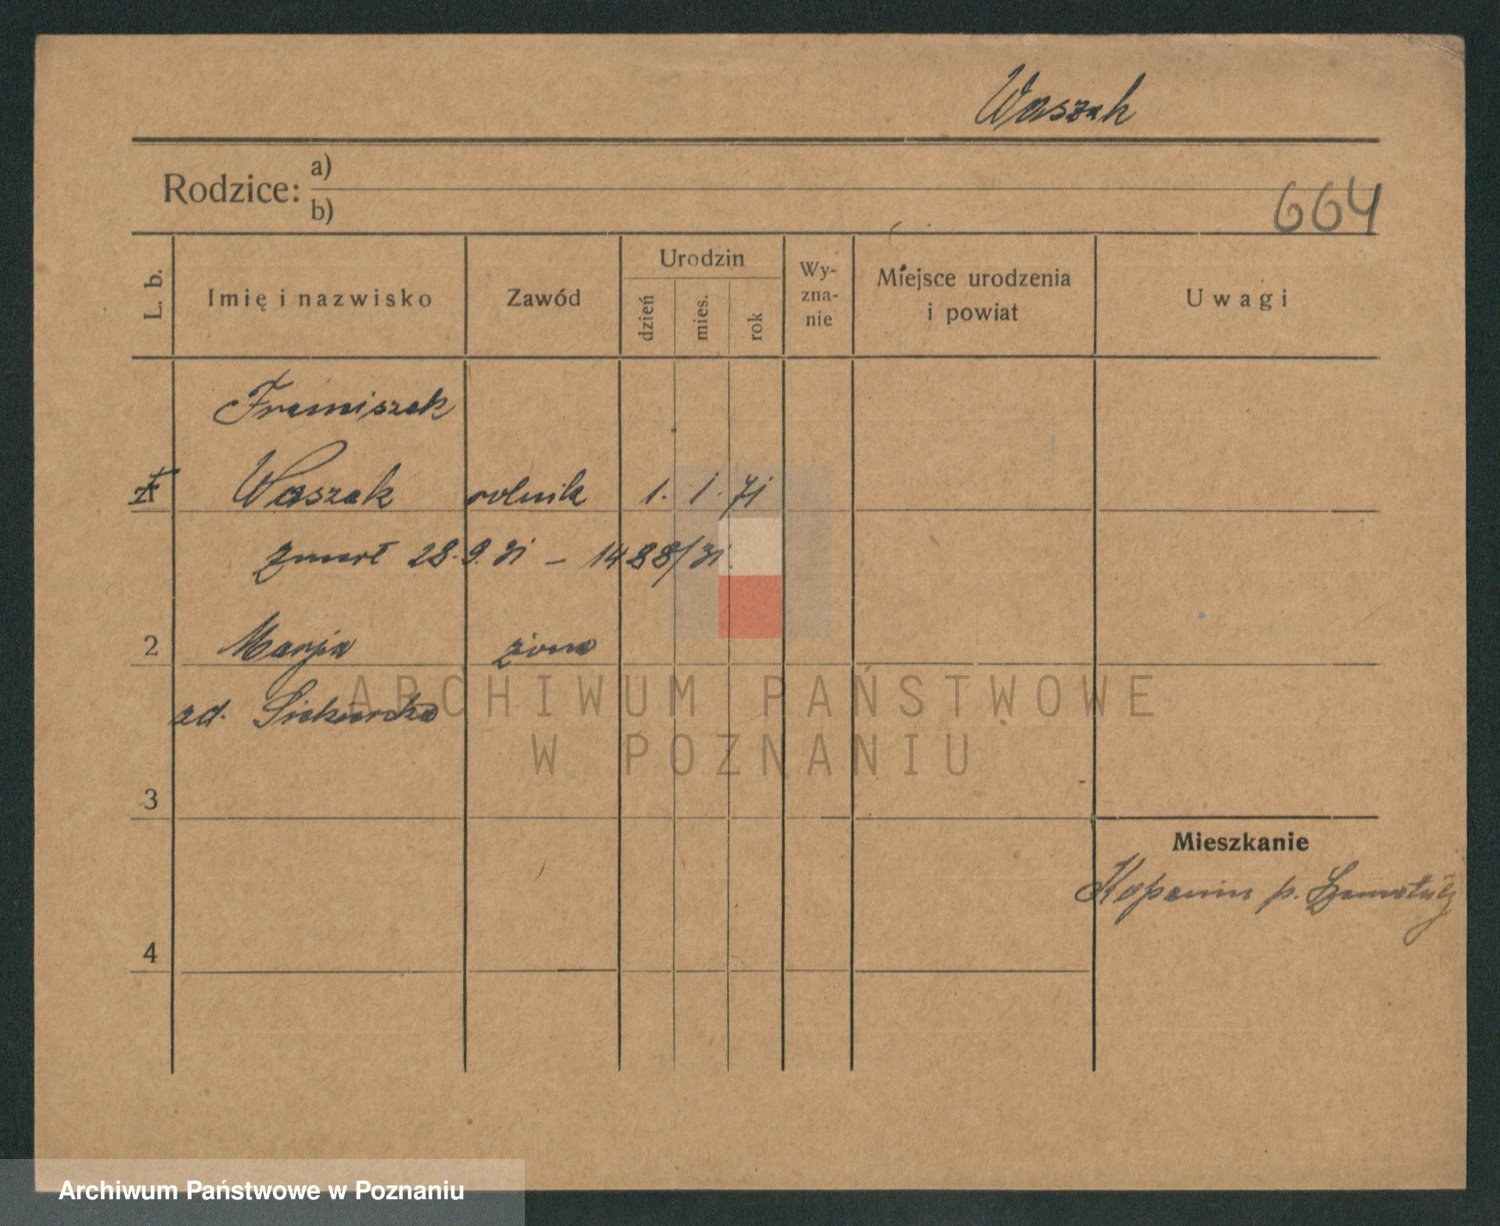 Waszak
Rodzice: a)
b)
664
L. b.
Imię i nazwisko
Zawód
Urodzin
dzień
mies.
rok
Wy-
zna-
nie
Miejsce urodzenia
i powiat
Uwagi
Franciszek
Waszak rolnik 1. 1. 71
zmarł 28.9.31 – 1488/31.
2 Marja żona
zd. Siekierska
3
Mieszkanie
Kopanin p. Szamotuły
4
ARCHIWUM PAŃSTWOWE
W POZNANIU
Archiwum Państwowe w Poznaniu